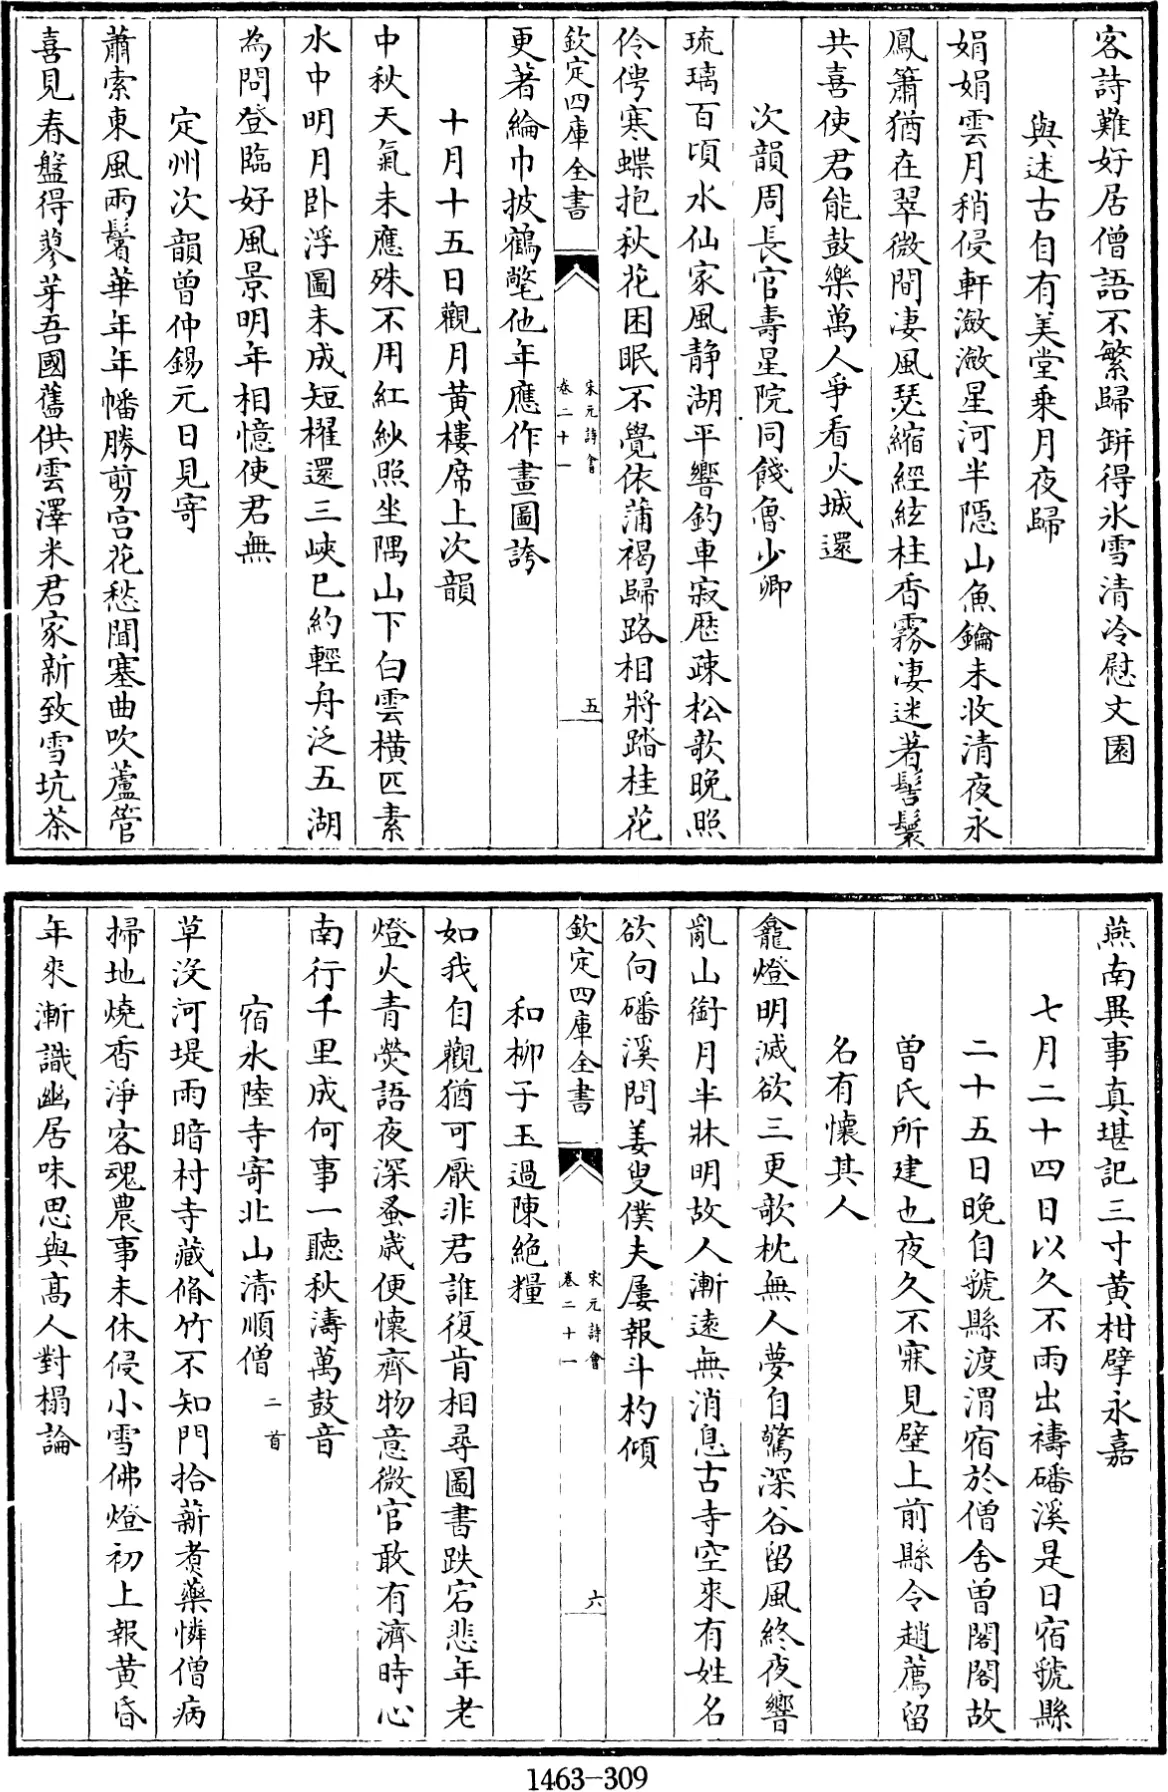 客詩難好居僧語不繁歸缾得氷雪清冷慰文園
與述古自有美堂乗月夜歸
娟娟雲月稍侵軒瀲瀲星河半隠山魚鑰未收清夜永
鳳簫猶在翠微間凄風瑟縮經絃柱香霧凄迷著髻鬟
共喜使君能鼓樂萬人爭看火城還
次韻周長官壽星院同餞魯少卿
琉璃百頃水仙家風静湖平響釣車寂厯疎松欹晚照
伶俜寒蝶抱秋花困眠不覺依蒲褐歸路相將踏桂花
欽定四庫全書
宋元詩會
卷二十一
五
更著綸巾披鶴氅他年應作畫圖誇
十月十五日觀月黄樓席上次韻
中秋天氣未應殊不用紅紗照坐隅山下白雲横匹素
水中明月卧浮圖未成短櫂還三峽已約輕舟泛五湖
為問登臨好風景明年相憶使君無
定州次韻曾仲錫元日見寄
蕭索東風兩鬢華年年幡勝剪宫花愁聞塞曲吹蘆管
喜見春盤得蓼芽吾國舊供雲澤米君家新致雪坑茶
燕南異事真堪記三寸黄柑擘永嘉
七月二十四日以久不雨出禱磻溪是日宿虢縣
二十五日晚自虢縣渡渭宿於僧舍曽閣閣故
曽氏所建也夜久不寐見壁上前縣令趙薦留
名有懷其人
龕燈明滅欲三更欹枕無人夢自驚深谷留風終夜響
亂山銜月半牀明故人漸逺無消息古寺空來有姓名
欲向磻溪問姜叟僕夫屢報斗杓傾
欽定四庫全書
宋元詩會
卷二十一
六
和柳子玉過陳絶糧
如我自觀猶可厭非君誰復肯相尋圖書跌宕悲年老
燈火青熒語夜深蚤歳便懷齊物意微官敢有濟時心
南行千里成何事一聽秋濤萬鼓音
宿水陸寺寄北山清順僧 二首
草沒河堤雨暗村寺藏脩竹不知門拾薪煑藥憐僧病
掃地燒香淨客魂農事未休侵小雪佛燈初上報黄昏
年來漸識幽居味思與高人對榻論
1463-309